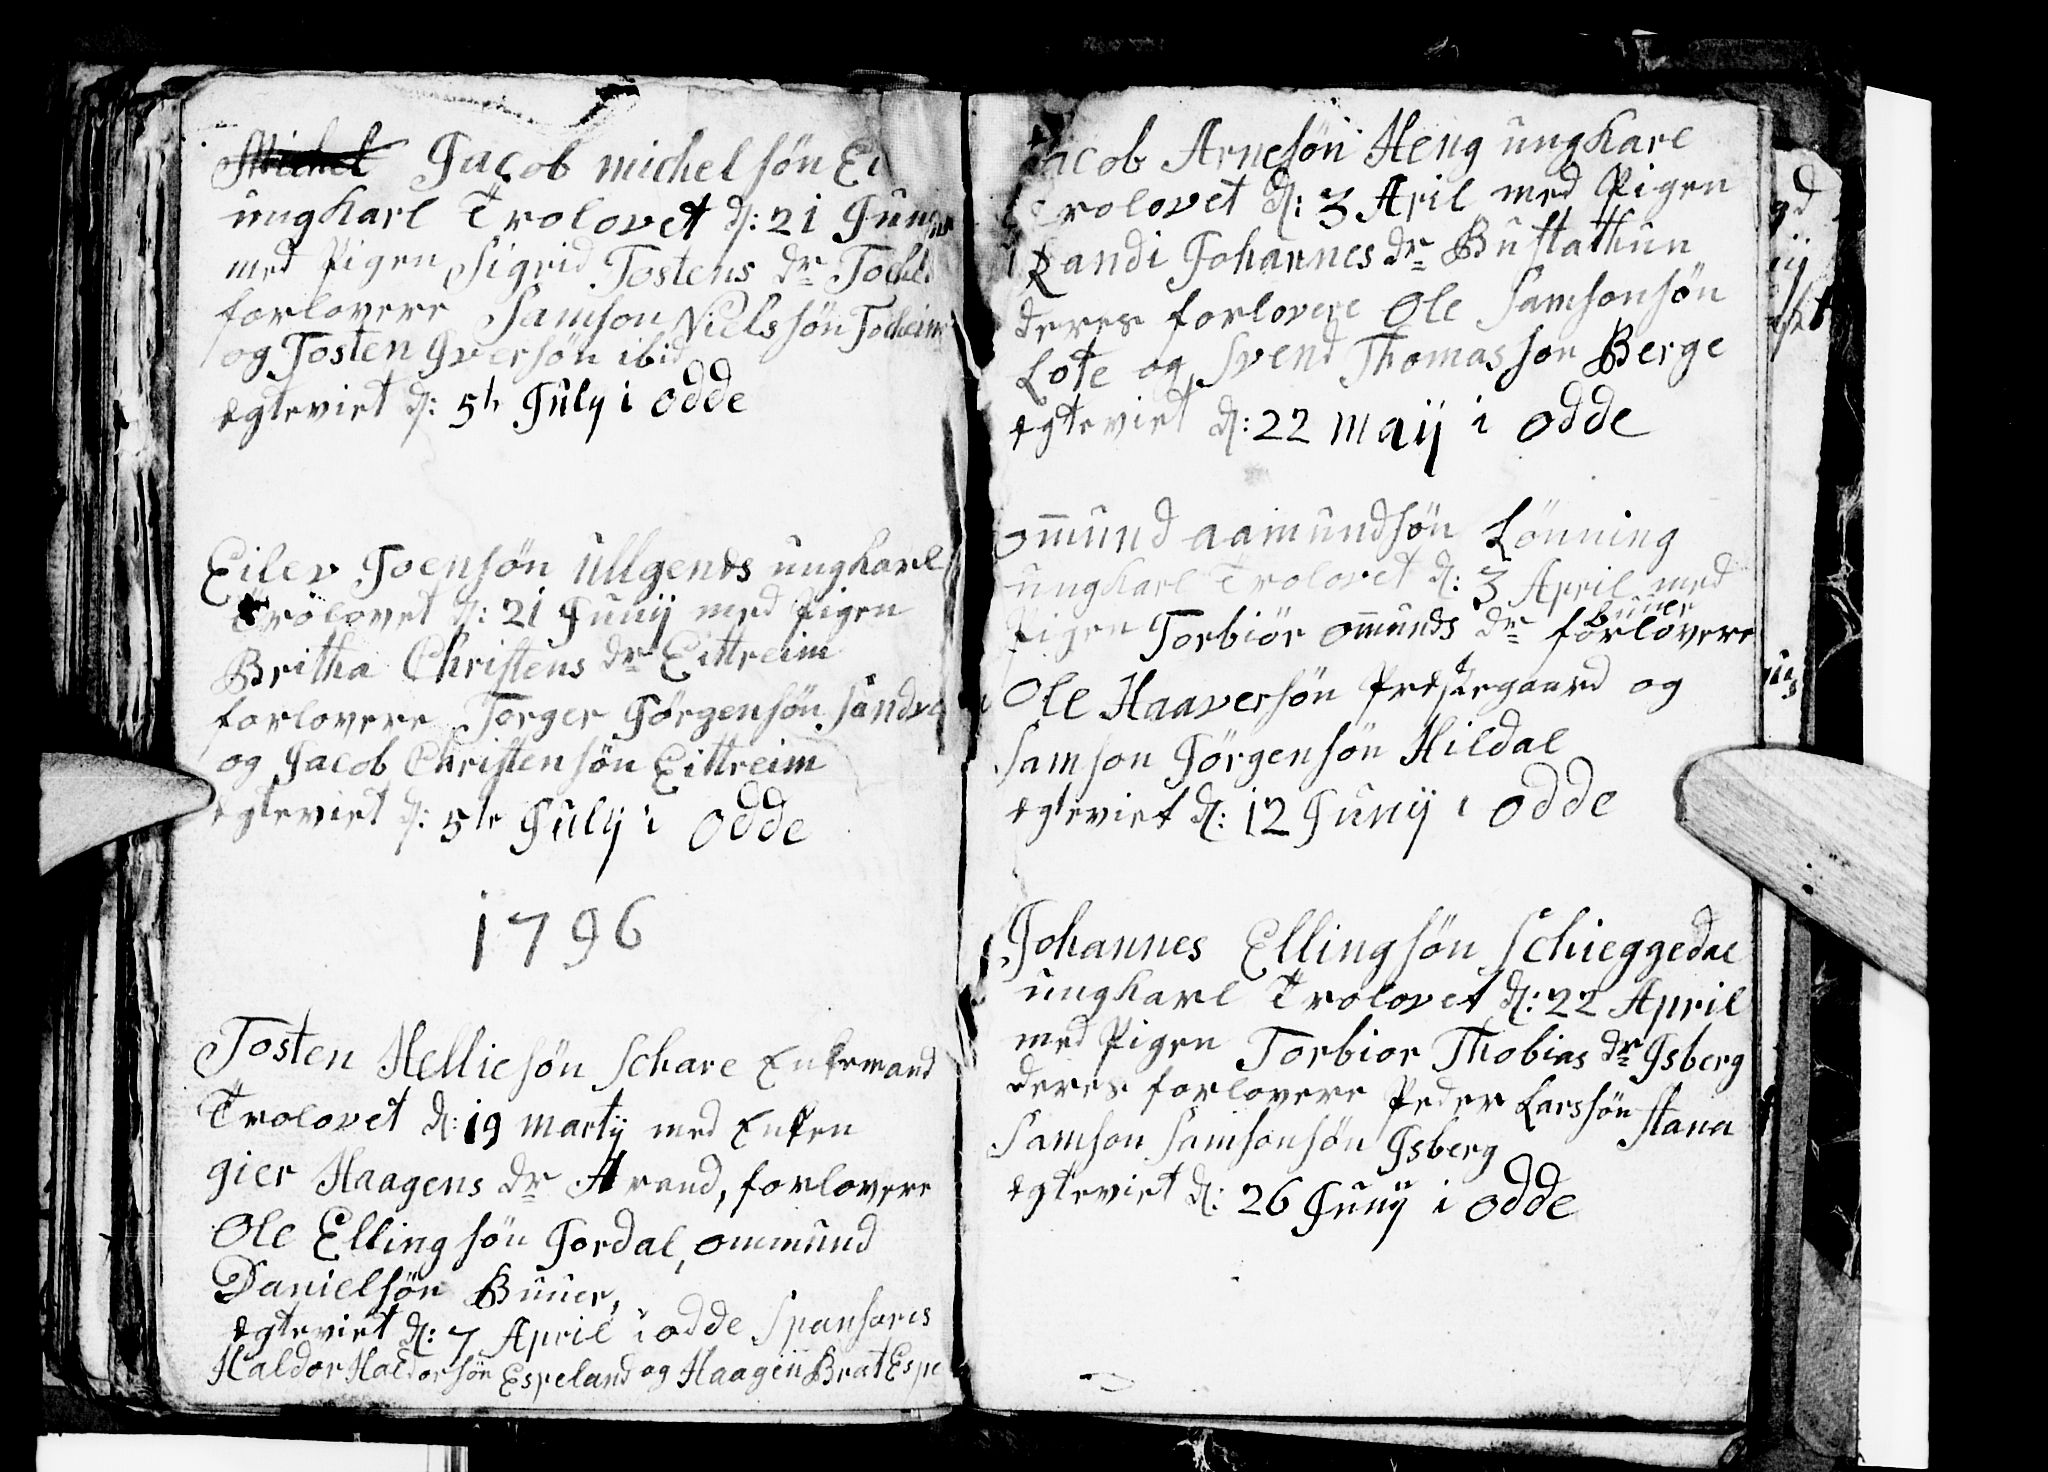 Jacob michelsön
ungkarl Trolovet d: 21 Junij
med Pigen Sigrid Tostens dr
forlovere Samson Nielssön Tockeim
og Tosten Iversön ibid
egteviet d: 5th July i Odde
Eilev Joensön Ullgends ungkarl
Trolovet d: 21 Junij med Pigen
Britha Christens dr Eittreim
forlovere Torger Jörgensön
og Jacob Christensön Eittreim
egteviet d: 5te July i Odde
1796
Tosten Helliesön Schare Enkemand
Trolovet d: 19 martij med Enken
gier Haagens dr Arand, forlovere
Ole Elling sön Jordal, ommund
Danielsön Buuer,
egteviet d: 7 April i odde Spansoris
Haldor Haldorsön Espeland og Haagen Brat Espe
Jacob Arnesön Heng ungkarl
Trolovet d: 3 Apil med Pigen
Randi Johannes dr Bustathun
deres forlovere Ole Samsonsön
Lote og Svend Thomasson Berge
egteviet d: 22 maij i Odde
om̅und aamundsön Lönning
ungkarl Trolovet d: 3 April med
Pigen Torbiör om̅unds dr Buuer forlovere
Ole Haaversön Prestegaard og
Samson Jörgensön Hildal
egteviet d: 12 Junij i Odde
Johannes Ellingsön Schieggedal
ungkarl Trolovet d: 22 April
med Pigen Torbior Thobias dr Isberg
deres forlovere Peder Larssön Stana
Samson Samsonsön Isberg
egteviet d: 26 Junij i Odde